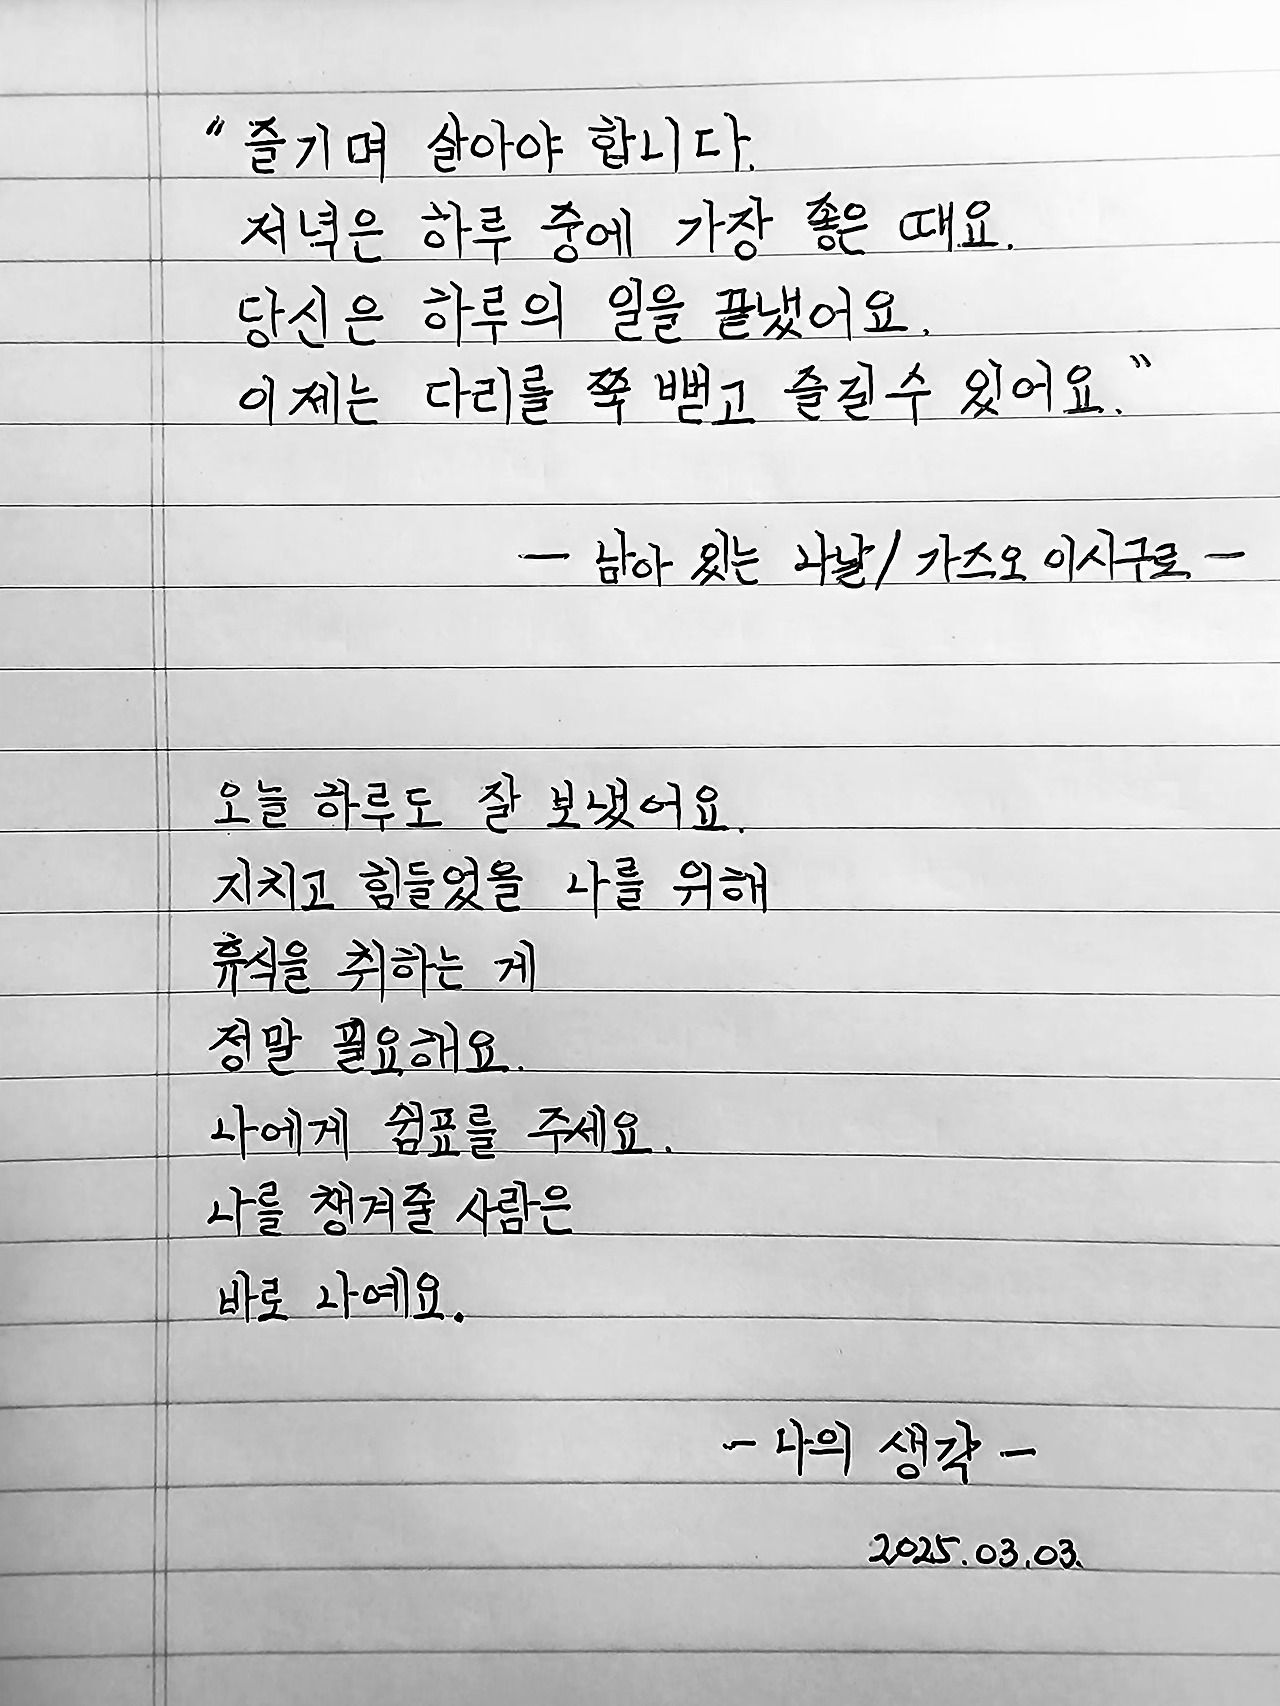 “즐기며 살아야 합니다.
저녁은 하루 중에 가장 좋은 때요.
당신은 하루의 일을 끝냈어요.
이제는 다리를 쭉 뻗고 즐길 수 있어요.”
- 남아 있는 나날 / 가즈오 이시구로 -
오늘 하루도 잘 보냈어요.
지치고 힘들었을 나를 위해
휴식을 취하는 게
정말 필요해요.
나에게 쉼표를 주세요.
나를 챙겨줄 사람은
바로 나예요.
- 나의 생각 -
2025.03.03.